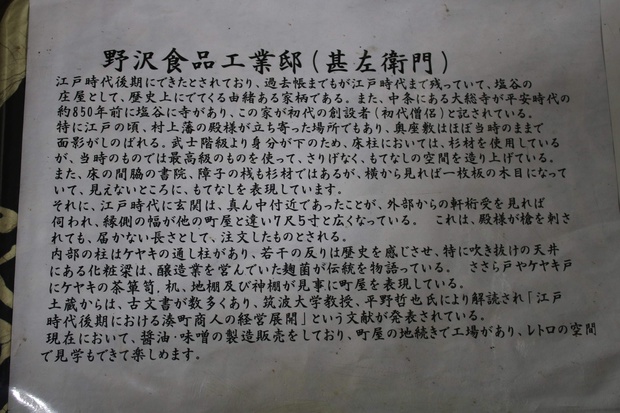 野沢食品工業邸(甚左衛門)
江戸時代後期にできたとされており、過去帳までもが江戸時代まで残っていて、塩谷の
庄屋として、歴史上にでてくる由緒ある家柄である。また、中条にある大総寺が平安時代の
約850年前に塩谷に寺があり、この家が初代の創設者(初代僧侶)と記されている。
特に江戸の頃、村上藩の殿様が立ち寄った場所でもあり、奥座敷はほぼ当時のままで
面影がしのばれる。武士階級より身分が下のため、床柱においては、杉材を使用している
が、当時のものでは最高級のものを使って、さりげなく、もてなしの空間を造り上げている。
また、床の間脇の書院、障子の桟も杉材ではあるが、横から見れば一枚板の木目になって
いて、見えないところに、もてなしを表現しています。
それに、江戸時代に玄関は、真ん中付近であったことが、外部からの軒桁受を見れば
伺われ、縁側の幅が他の町屋と違い7尺5寸と広くなっている。 これは、殿様が槍を刺さ
れても、届かない長さとして、注文したものとされる。
内部の柱はケヤキの通し柱があり、若干の反りは歴史を感じさせ、特に吹き抜けの天井
にある化粧梁は、醸造業を営んでいた麹菌が伝統を物語っている。 ささら戸やケヤキ戸
にケヤキの茶箪笥、机、地棚及び神棚が見事に町屋を表現している。
土蔵からは、古文書が数多くあり、筑波大学教授、平野哲也氏により解読され「江戸
時代後期における湊町商人の経営展開」という文献が発表されている。
現在において、醤油・味噌の製造販売をしており、町屋の地続きで工場があり、レトロの空間
で見学もできて楽しめます。